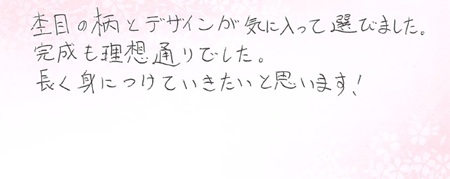 杢目の柄とデザインが気に入って選びました。
完成も理想通りでした。
長く身につけていきたいと思います!